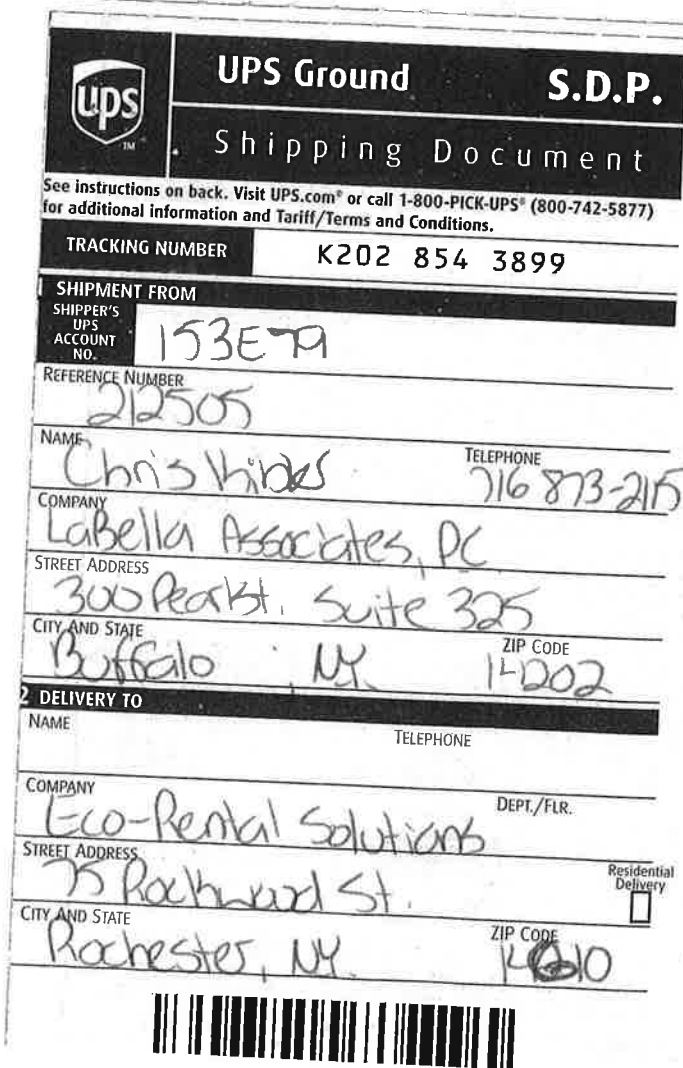 ups
TM
UPS Ground S.D.P.
Shipping Document
See instructions on back. Visit UPS.com® or call 1-800-PICK-UPS® (800-742-5877)
for additional information and Tariff/Terms and Conditions.
TRACKING NUMBER K202 854 3899
1 SHIPMENT FROM
SHIPPER'S
UPS
ACCOUNT
NO. 153E79
REFERENCE NUMBER
212505
NAME TELEPHONE
Chris 716 873-2115
COMPANY
LaBella Associates, PC
STREET ADDRESS
300 Pearl St. Suite 325
CITY AND STATE ZIP CODE
Buffalo, NY. 14202
2 DELIVERY TO
NAME TELEPHONE
COMPANY DEPT./FLR.
Eco-Rental Solutions
STREET ADDRESS Residential
Delivery
75 Rockwood St.
CITY AND STATE ZIP CODE
Rochester, NY. 14610